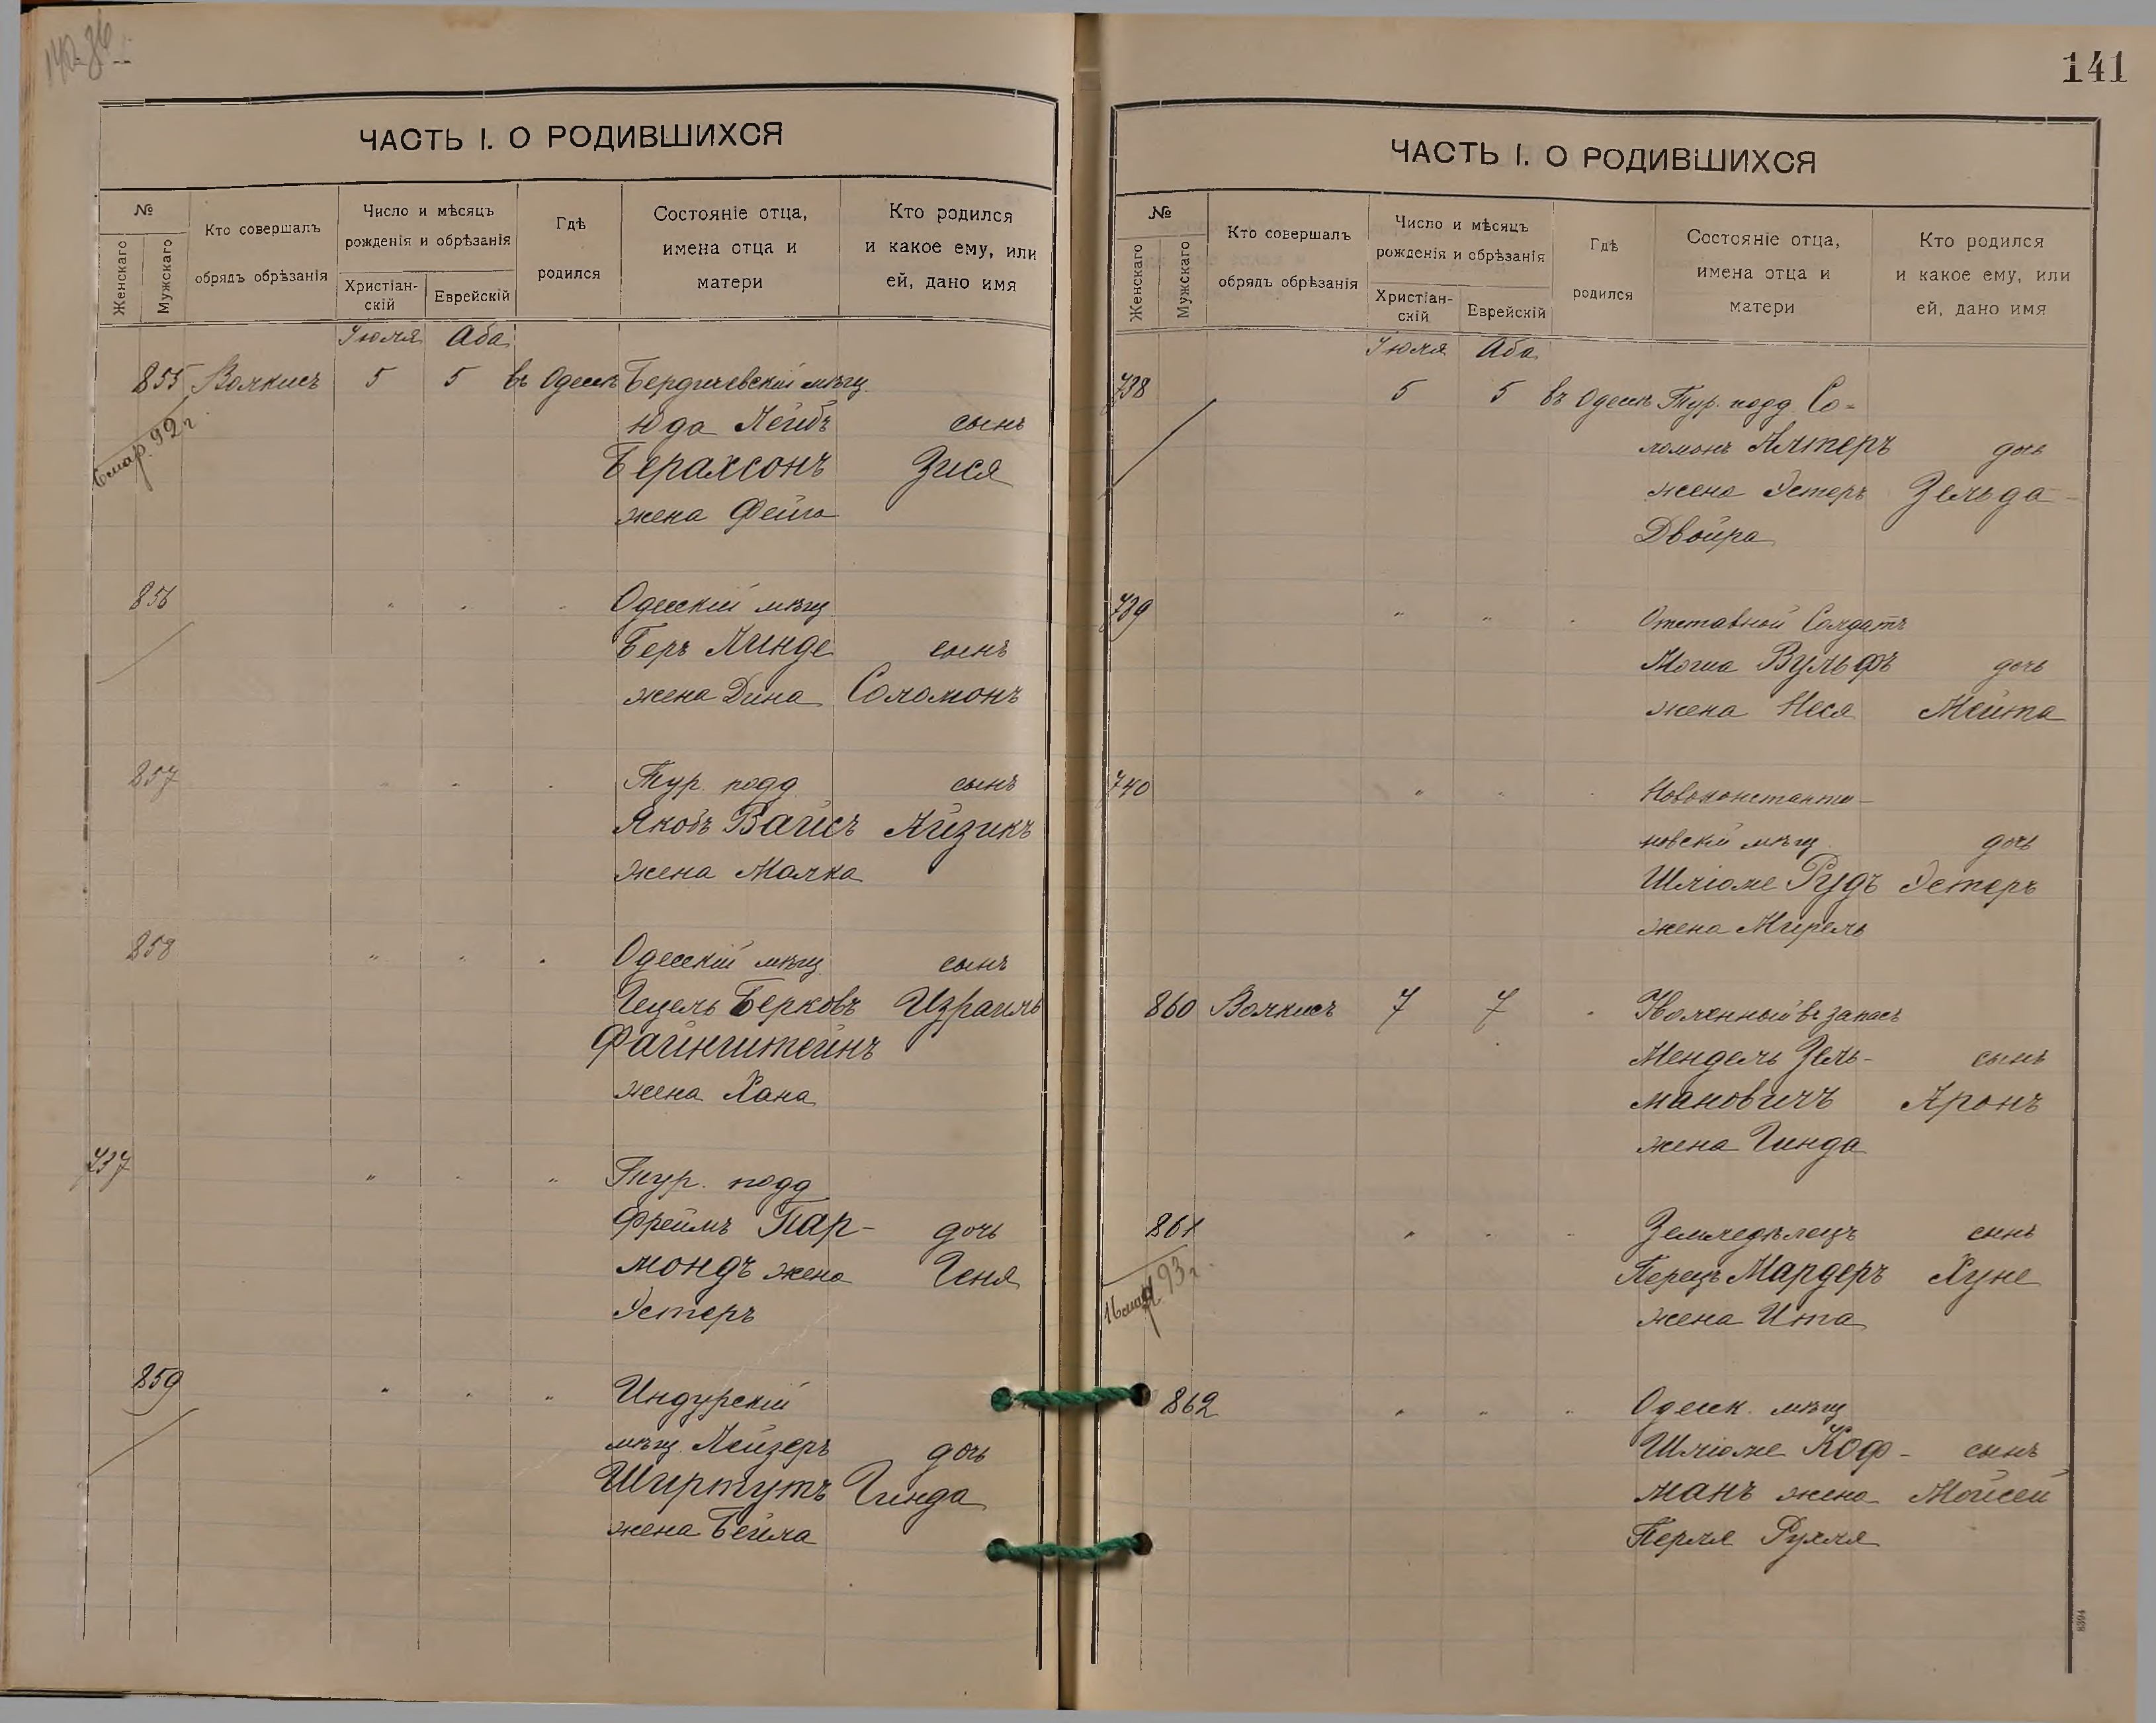 141
ЧАСТЬ I. О РОДИВШИХСЯ
№
Женскаго
Мужскаго
Кто совершалъ
обрядъ обрѣзанія
Число и мѣсяцъ
рожденія и обрѣзанія
Христіан-
скій
Еврейскій
Гдѣ
родился
Состояніе отца,
имена отца и
матери
Кто родился
и какое ему, или
ей, дано имя
Іюля Аба
855 Волкисъ 5 5 въ Одессѣ Бердичевскій мѣщ.
Юда Лейбъ сынъ
Берахсонъ Зися
жена Фейга
856 " " " Одесскій мѣщ
Беръ Линде сынъ
жена Дина Соломонъ
857 " " " Тур. подд сынъ
Якобъ Вайсъ Айзикъ
жена Малка
858 " " " Одесскій мѣщ сынъ
Гецель Берковъ Израиль
Файнштейнъ
жена Хана
737 " " " Тур. подд
Фреимъ Пар- дочь
мондъ жена Геня
Эстеръ
859 " " " Индурскій
мѣщ. Лейзеръ дочь
Ширтутъ Гинда
жена Бейла
ЧАСТЬ I. О РОДИВШИХСЯ
№
Женскаго
Мужскаго
Кто совершалъ
обрядъ обрѣзанія
Число и мѣсяцъ
рожденія и обрѣзанія
Христіан-
скій
Еврейскій
Гдѣ
родился
Состояніе отца,
имена отца и
матери
Кто родился
и какое ему, или
ей, дано имя
Іюля Аба
738 5 5 въ Одессѣ Тур. подд. Со-
ломонъ Альтеръ дочь
жена Эстеръ Зельда-
Двойра
739 " " " Отставной Солдатъ
Мошка Вульфъ дочь
жена Неся Мейта
740 " " " Новоконстанти-
новскій мѣщ. дочь
Шліоме Рудъ Эстеръ
жена Мирель
860 Волкисъ 7 7 " Уволенный въ запасъ
Мендель Зель- сынъ
мановичъ Аронъ
жена Гинда
861 " " " Земледѣлецъ сынъ
Перецъ Мардеръ Хуне
жена Ита
862 " " " Одесск. мѣщ
Шліоме Коф- сынъ
манъ жена Мойсей
Перля Рухля
8394